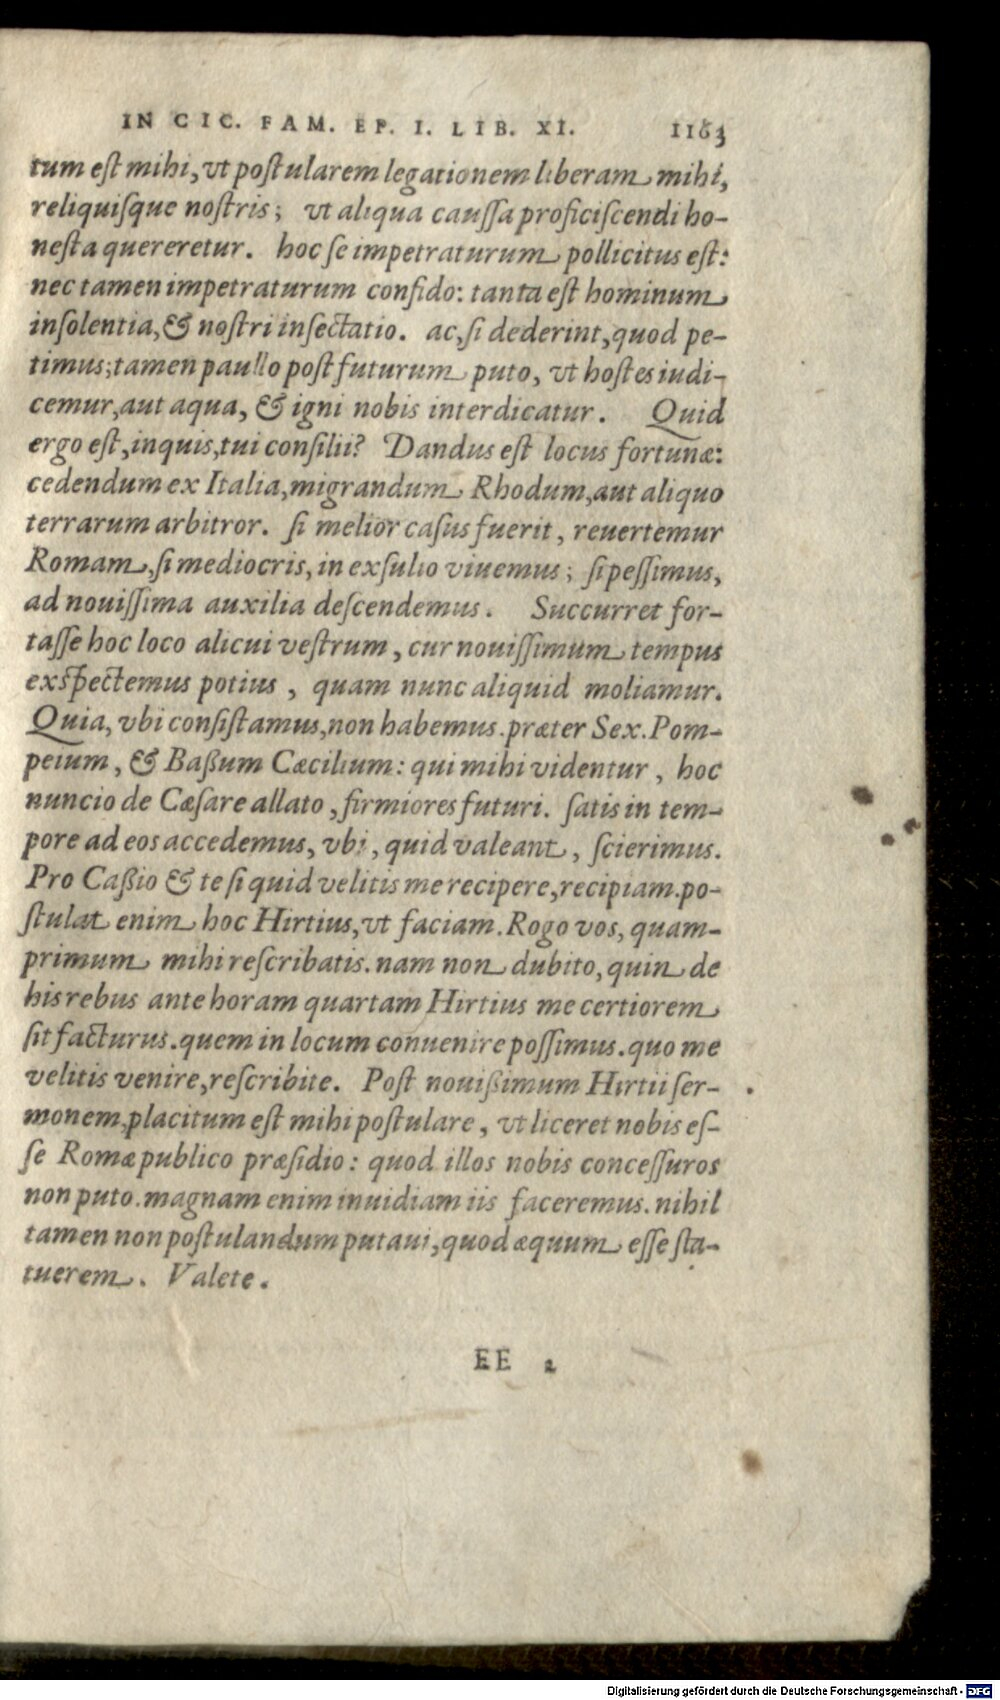 IN CIC. FAM. EP. I. LIB. XI. 1163
tum est mihi, vt postularem legationem liberam mihi,
reliquisque nostris; vt aliqua caussa proficiscendi ho-
nesta quereretur. hoc se impetraturum pollicitus est:
nec tamen impetraturum confido: tanta est hominum
insolentia, & nostri insectatio. ac, si dederint, quod pe-
timus; tamen paullo post futurum puto, vt hostes iudi-
cemur, aut aqua, & igni nobis interdicatur. Quid
ergo est, inquis, tui consilii? Dandus est locus fortunæ:
cedendum ex Italia, migrandum Rhodum, aut aliquo
terrarum arbitror. si melior casus fuerit, reuertemur
Romam, si mediocris, in exsulio viuemus; si pessimus,
ad nouissima auxilia descendemus. Succurret for-
tasse hoc loco alicui vestrum, cur nouissimum tempus
exspectemus potius, quam nunc aliquid moliamur.
Quia, vbi consistamus, non habemus. præter Sex. Pom-
peium, & Baßum Cæcilium: qui mihi videntur, hoc
nuncio de Cæsare allato, firmiores futuri. satis in tem-
pore ad eos accedemus, vbi, quid valeant, scierimus.
Pro Caßio & te si quid velitis me recipere, recipiam. po-
stulat enim hoc Hirtius, vt faciam. Rogo vos, quam-
primum mihi rescribatis. nam non dubito, quin de
his rebus ante horam quartam Hirtius me certiorem
sit facturus. quem in locum conuenire possimus. quo me
velitis venire, rescribite. Post nouißimum Hirtii ser-
monem, placitum est mihi postulare, vt liceret nobis es-
se Romæ publico præsidio: quod illos nobis concessuros
non puto. magnam enim inuidiam iis faceremus. nihil
tamen non postulandum putaui, quod æquum esse sta-
tuerem. Valete.
EE 2
Digitalisierung gefördert durch die Deutsche Forschungsgemeinschaft - DFG